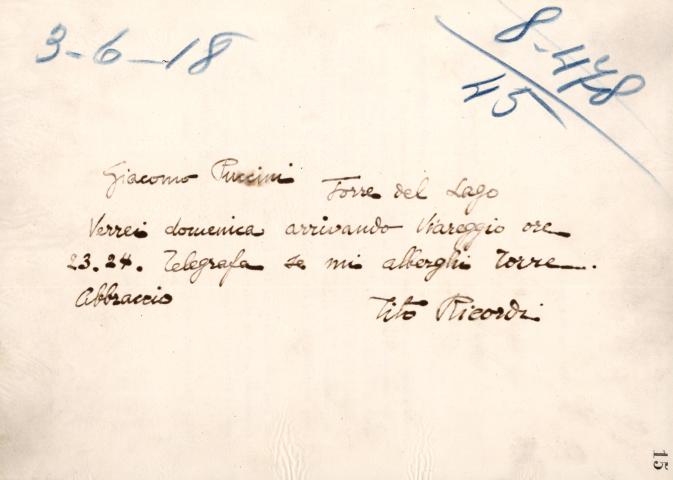 3-6-18
8-478
45
Giacomo Puccini Torre del Lago
Verrei domenica arrivando Viareggio ore
23.24. Telegrafa se mi alberghi Torre.
Abbraccio
Tito Ricordi
15